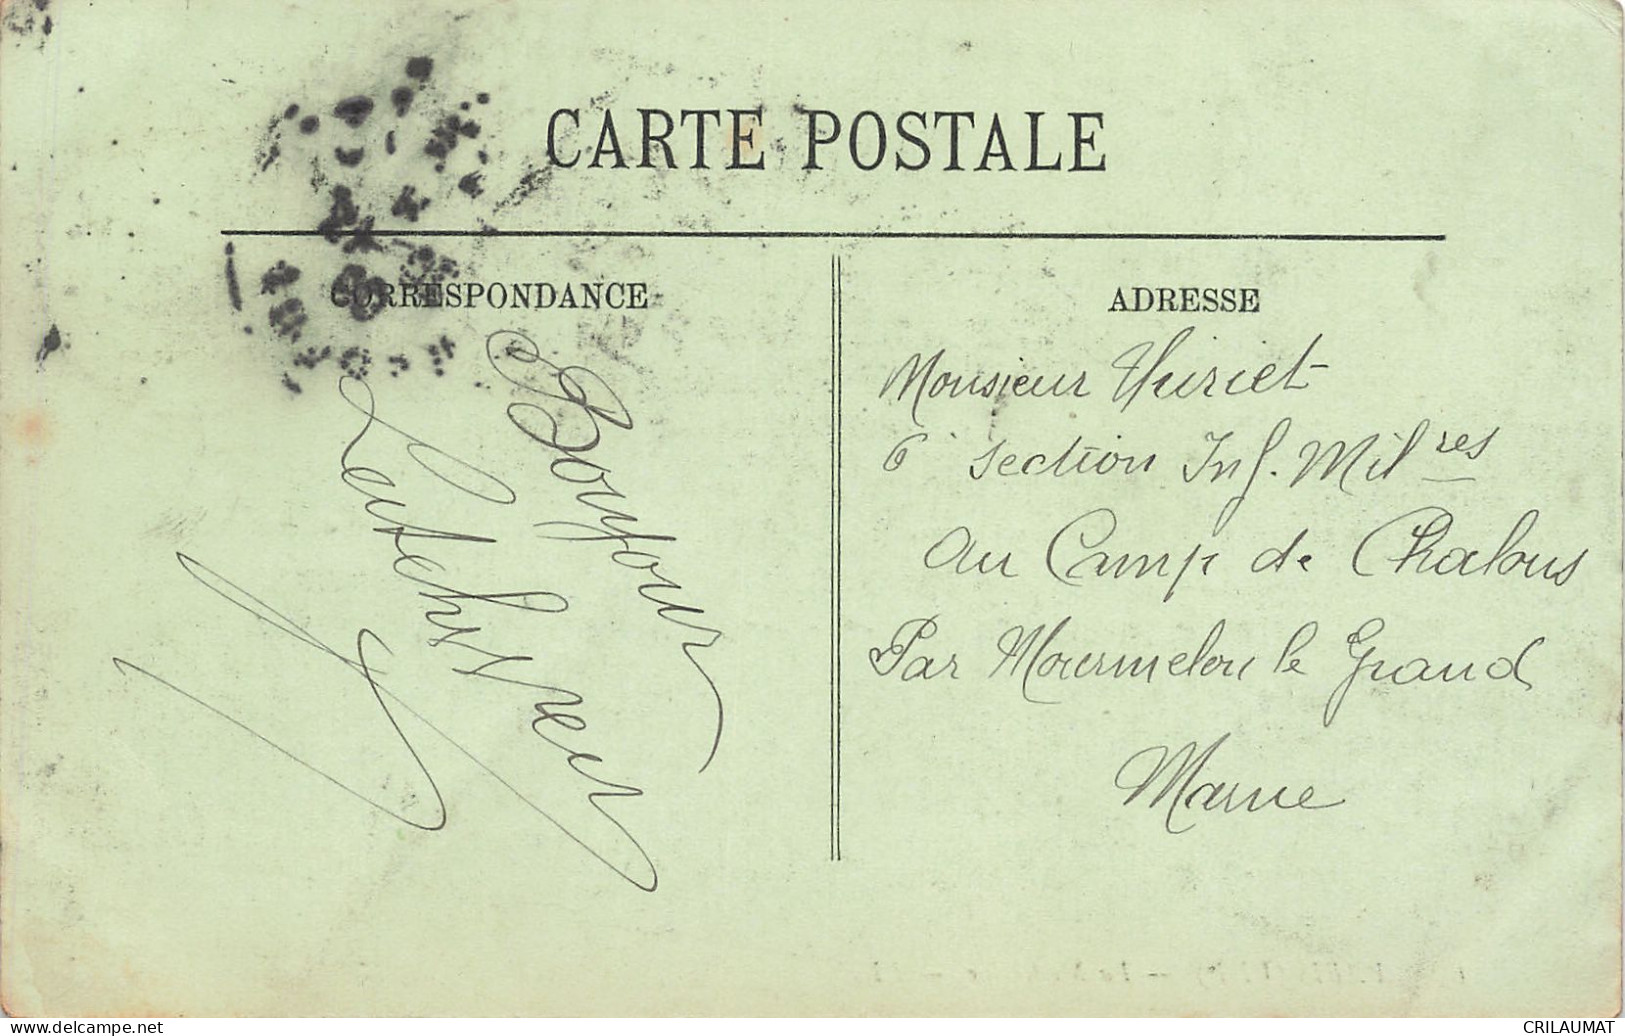 CARTE POSTALE
CORRESPONDANCE
Bonjour
ADRESSE
Monsieur Huriet
6e Section Inf. Mil res
au Camp de Chalons
Par Mourmelon le Grand
Marne
www.delcampe.net
CRILAUMAT